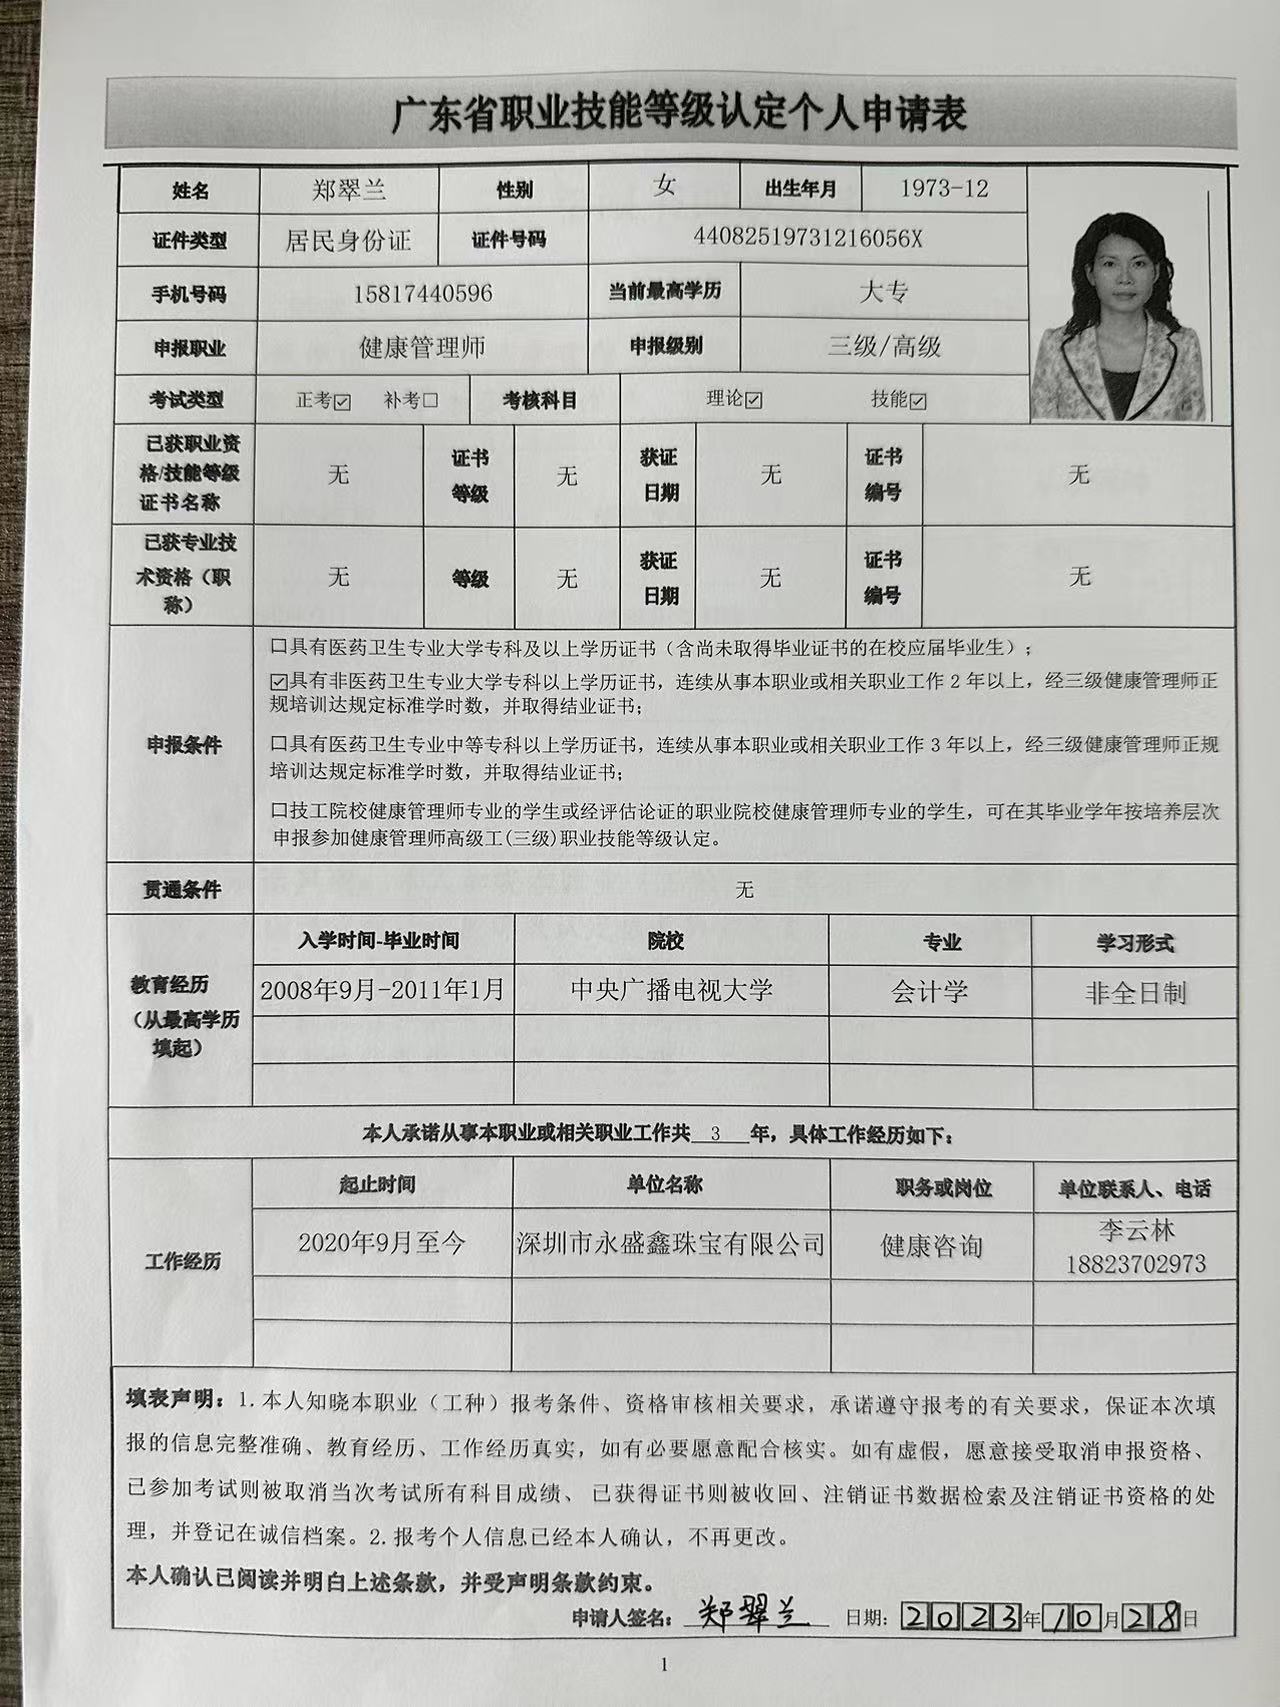 广东省职业技能等级认定个人申请表
姓名 郑翠兰 性别 女 出生年月 1973-12
证件类型 居民身份证 证件号码 44082519731216056X
手机号码 15817440596 当前最高学历 大专
申报职业 健康管理师 申报级别 三级/高级
考试类型 正考☑ 补考☐ 考核科目 理论☑ 技能☑
已获职业资
格/技能等级
证书名称
无
证书
等级
无
获证
日期
无
证书
编号
无
已获专业技
术资格（职
称）
无
等级
无
获证
日期
无
证书
编号
无
申报条件
☐具有医药卫生专业大学专科及以上学历证书（含尚未取得毕业证书的在校应届毕业生）；
☑具有非医药卫生专业大学专科以上学历证书，连续从事本职业或相关职业工作2年以上，经三级健康管理师正
规培训达规定标准学时数，并取得结业证书；
☐具有医药卫生专业中等专科以上学历证书，连续从事本职业或相关职业工作3年以上，经三级健康管理师正规
培训达规定标准学时数，并取得结业证书；
☐技工院校健康管理师专业的学生或经评估论证的职业院校健康管理师专业的学生，可在其毕业学年按培养层次
申报参加健康管理师高级工(三级)职业技能等级认定。
贯通条件 无
教育经历
（从最高学历
填起）
入学时间-毕业时间 院校 专业 学习形式
2008年9月-2011年1月 中央广播电视大学 会计学 非全日制
本人承诺从事本职业或相关职业工作共 3 年，具体工作经历如下：
工作经历
起止时间 单位名称 职务或岗位 单位联系人、电话
2020年9月至今 深圳市永盛鑫珠宝有限公司 健康咨询 李云林
18823702973
填表声明：1.本人知晓本职业（工种）报考条件、资格审核相关要求，承诺遵守报考的有关要求，保证本次填
报的信息完整准确、教育经历、工作经历真实，如有必要愿意配合核实。如有虚假，愿意接受取消申报资格、
已参加考试则被取消当次考试所有科目成绩、 已获得证书则被收回、注销证书数据检索及注销证书资格的处
理，并登记在诚信档案。2.报考个人信息已经本人确认，不再更改。
本人确认已阅读并明白上述条款，并受声明条款约束。
申请人签名：郑翠兰 日期：2023年10月28日
1